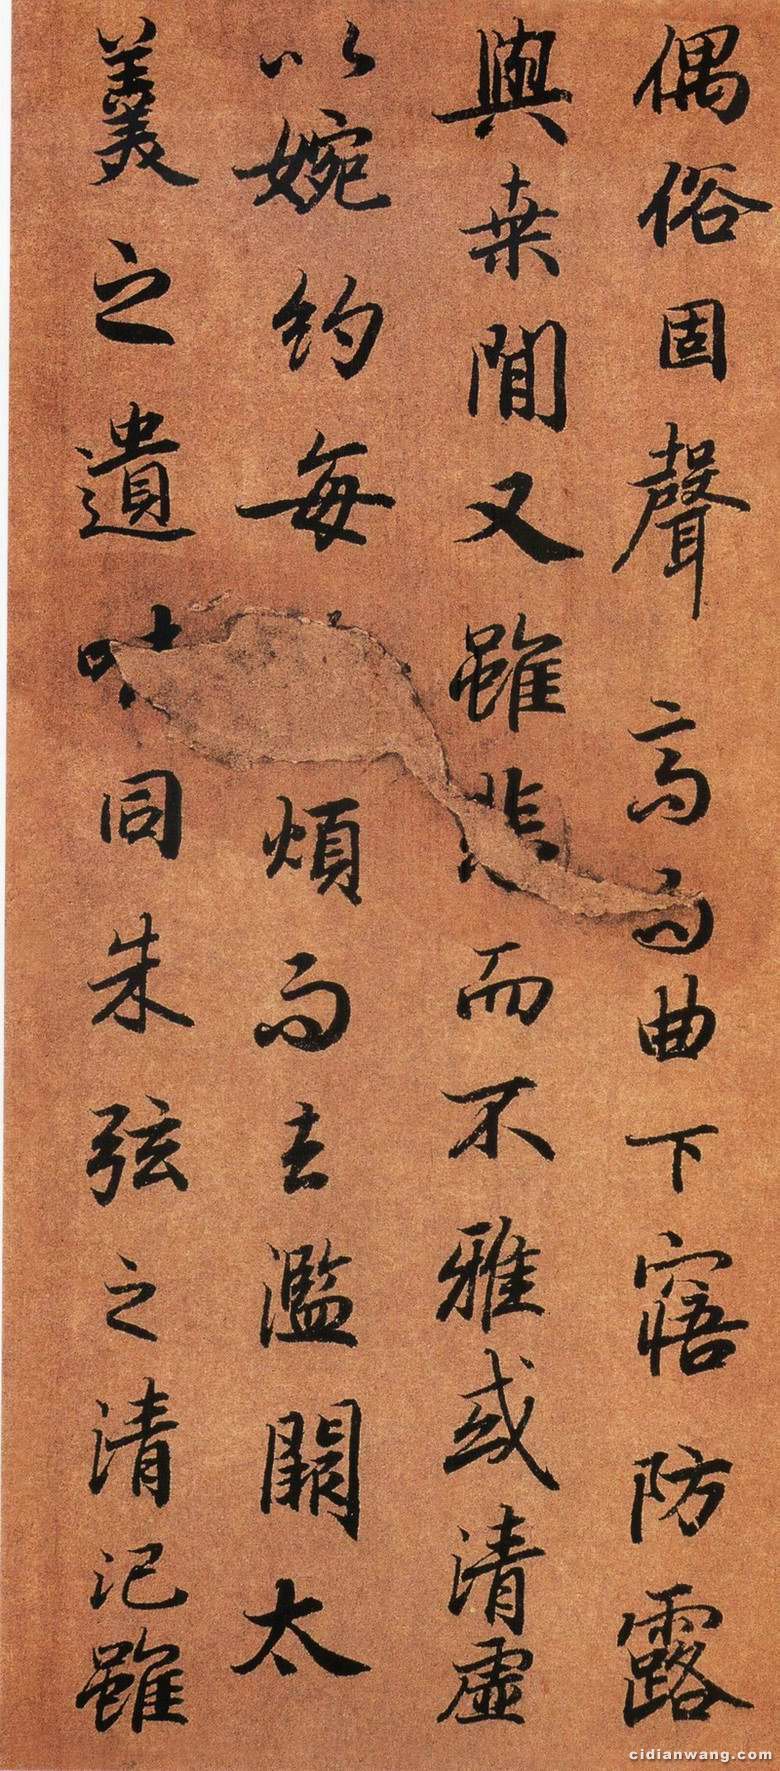 偶俗固聲高而曲下寤防露
與桒閒又雖悲而不雅或清虛
以婉約每煩而去濫闕太
羹之遺味同朱弦之清氾雖
cidianwang.com